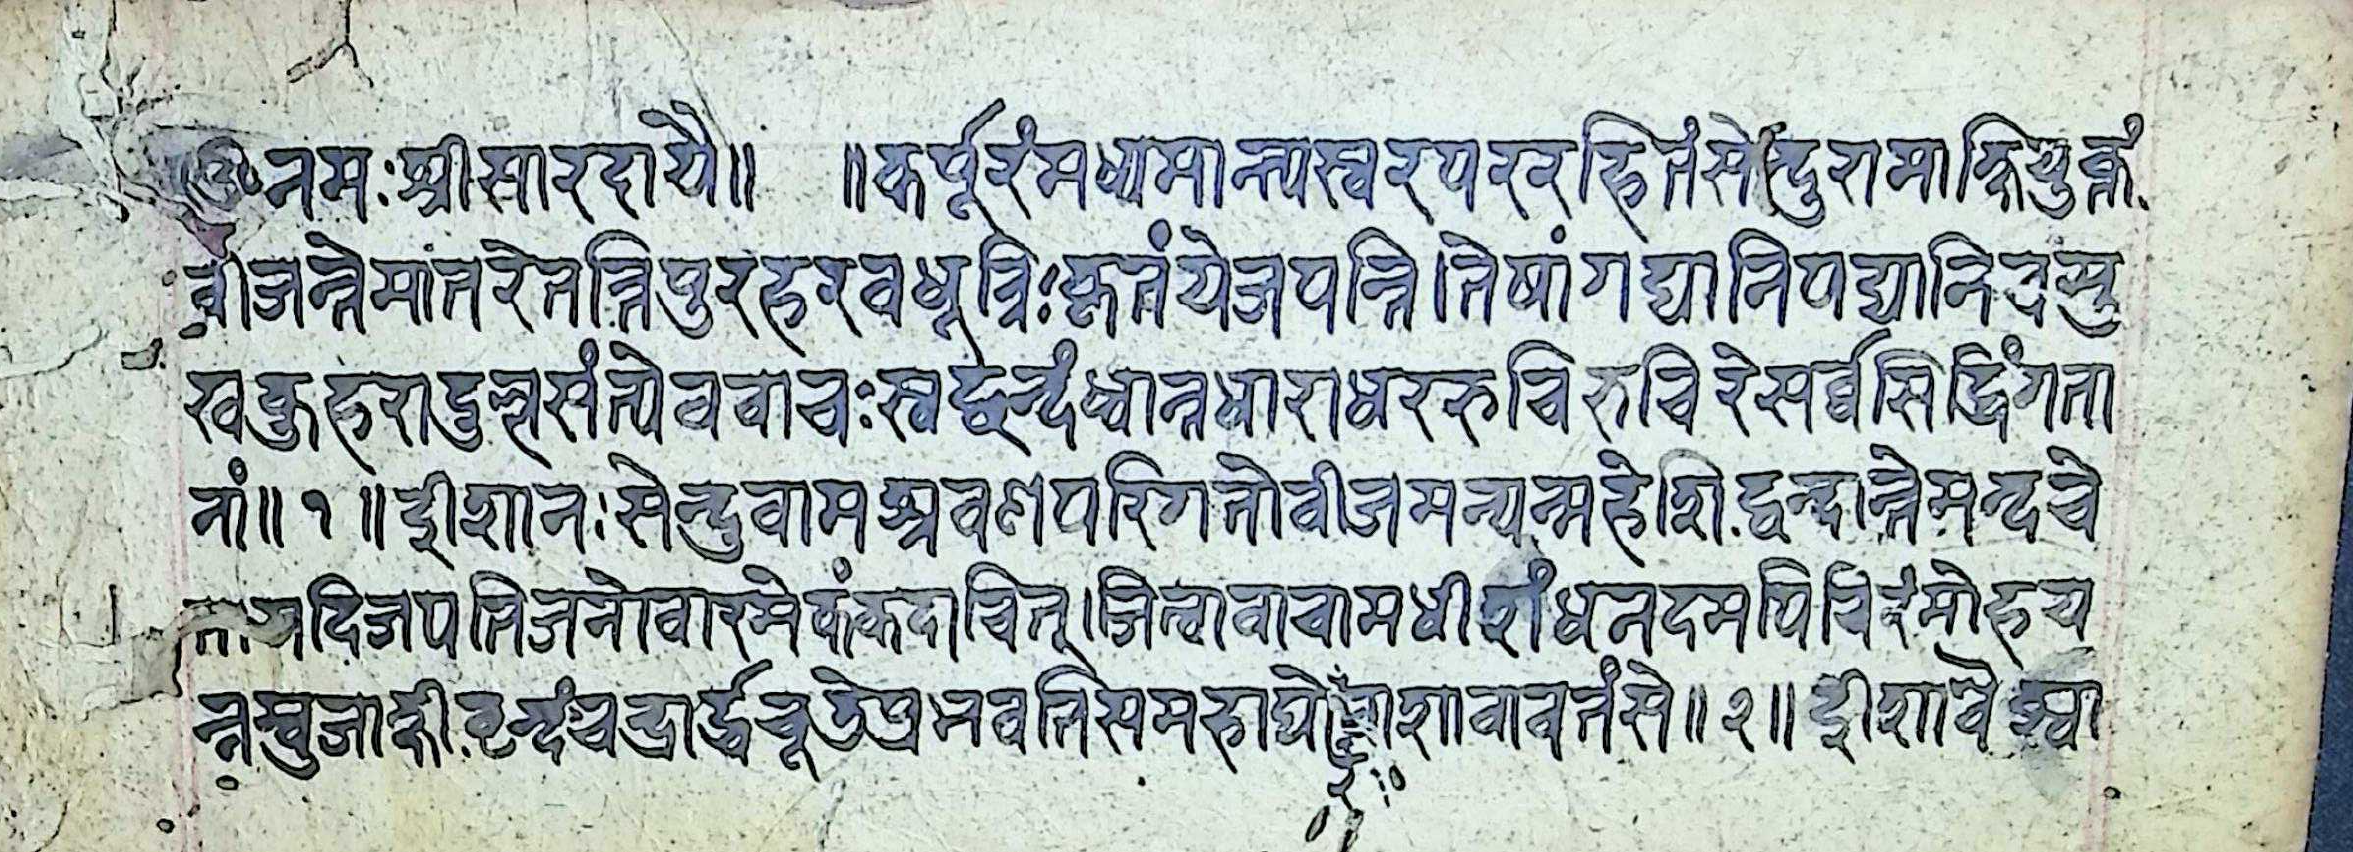 ॐ नमः श्रीसारदायै॥ ॥कर्पूरंमध्यमान्त्यस्वरपररहितंसेन्दुरामाक्षियुक्तं
बीजन्तेमातरेतत्त्रिपुरहरवधूत्रिःकृतंयेजपन्ति।तेषांगद्यानिपद्यानिचमु
खकुहरादुल्लसंत्येववाचःस्वछन्दंध्वान्तधाराधररुचिरुचिरेसर्व्वसिद्धिंगता
नां॥१॥ईशानःसेन्दुवामश्रवणपरिगतोबीजमन्यन्महेशिद्वन्द्वान्तेमन्दचे
तायदिजपतिजनोवारमेकंकदाचित्।जित्वावाचामधीशंधनदमपिचिरंमोहय
न्नम्बुजाक्षीवृन्दंचन्द्रार्द्धचूडेप्रभवतिसमहाघोरशावावतंसे॥२॥ईशोवैश्वा